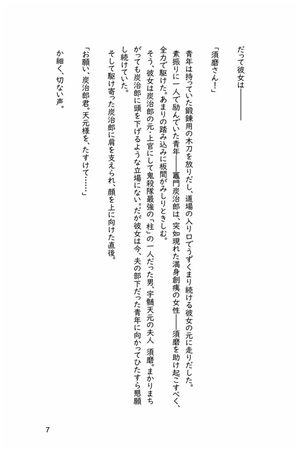 だって彼女は――
「須磨さん！」
青年は持っていた鍛錬用の木刀を放りだし、道場の入り口でうずくまり続ける彼女の元に走りだした。
素振りに一人で励んでいた青年――竈門炭治郎は、突如現れた満身創痍の女性――須磨を助け起こすべく、
全力で駆けた。あまりの踏み込みに板間がみしりときしむ。
そう、彼女は炭治郎の元・上官にして鬼殺隊最強の「柱」の一人だった男、宇髄天元の夫人 須磨。まかりまち
がっても炭治郎に頭を下げるような立場にない。だが彼女は今、夫の部下だった青年に向かってひたすら懇願
し続けていた。
そして駆け寄った炭治郎に肩を支えられ、顔を上に向けた直後。
「お願い、炭治郎君。天元様を、たすけて……」
か細く、切ない声。
7